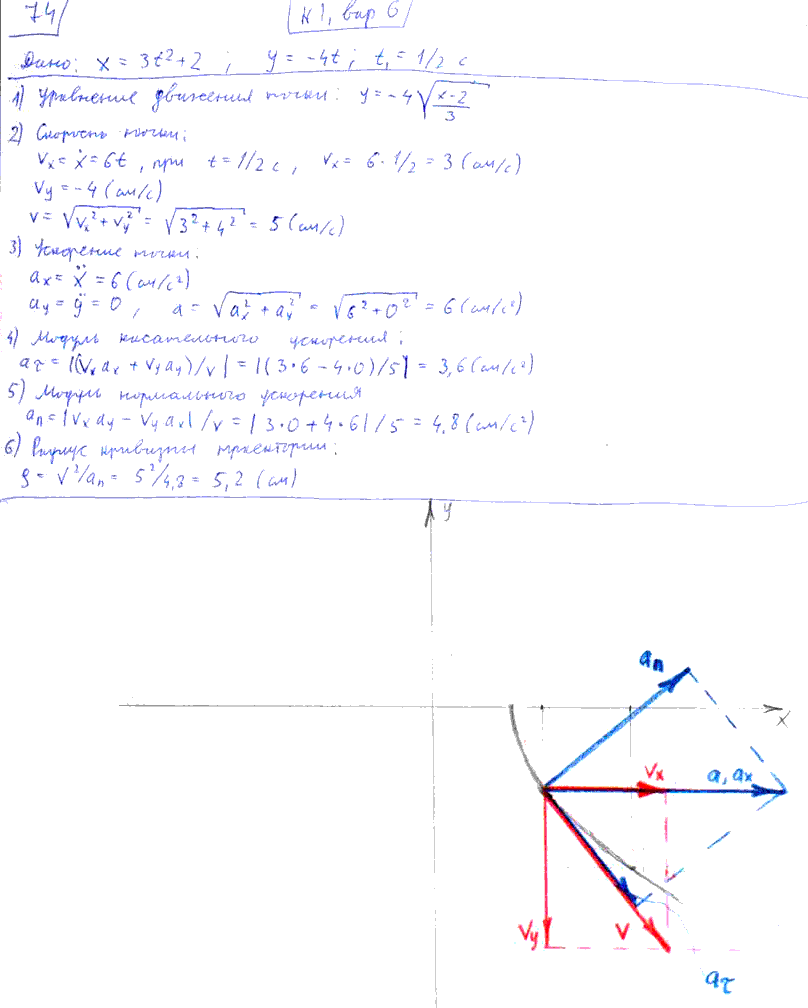 74
К1, вар 6
Дано: x = 3t²+2 ; y = -4t ; t₁ = 1/2 c
1) Уравнение движения точки: y = -4√((x-2)/3)
2) Скорость точки:
Vx = ẋ = 6t , при t = 1/2 c , Vx = 6·1/2 = 3 (см/с)
Vy = -4 (см/с)
v = √(Vx² + Vy²) = √(3² + 4²) = 5 (см/с)
3) Ускорение точки:
ax = ẍ = 6 (см/с²)
ay = ÿ = 0 , a = √(ax² + ay²) = √(6² + 0²) = 6 (см/с²)
4) Модуль касательного ускорения:
aτ = |(Vx ax + Vy ay)/v| = |(3·6 - 4·0)/5| = 3,6 (см/с²)
5) Модуль нормального ускорения
an = |Vx ay - Vy ax|/v = |3·0 + 4·6|/5 = 4,8 (см/с²)
6) Радиус кривизны траектории:
ρ = V²/an = 5²/4,8 = 5,2 (см)
y
an
x
Vx
a, ax
Vy
V
aτ